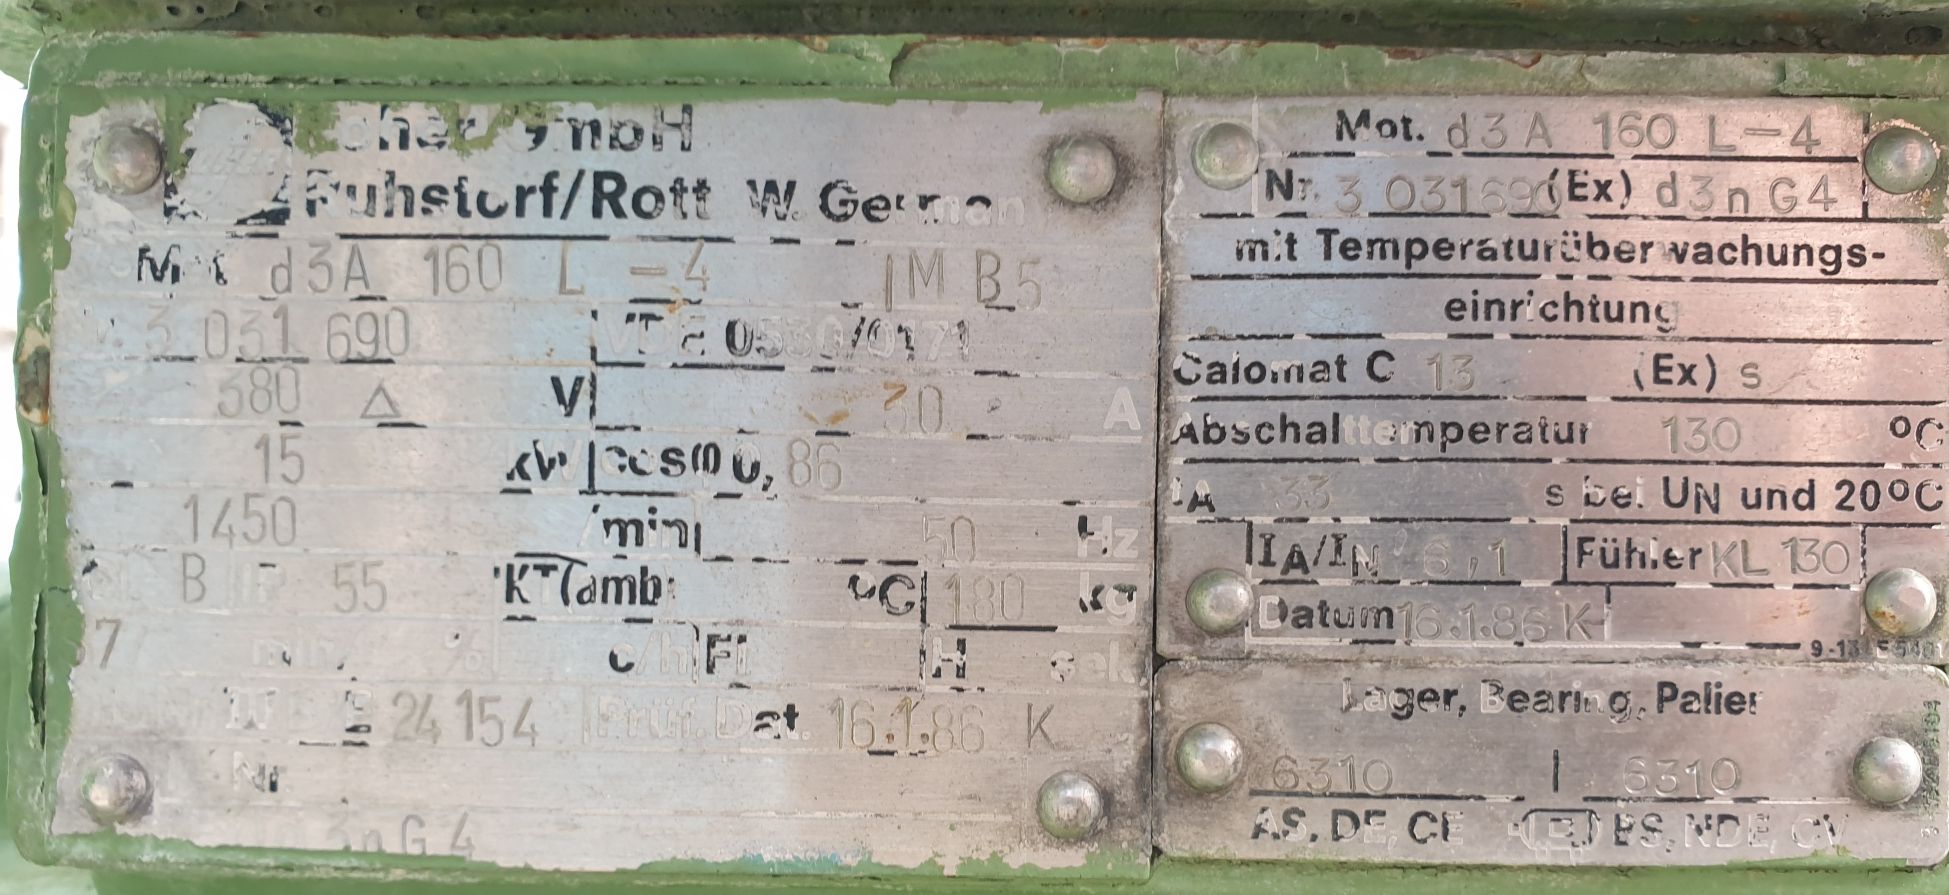 GmbH
Ruhstorf/Rott W. German
Mot d3A 160 L-4 IM B5
3 031 690 VDE 0530/0171
380 △ V 30 A
15 kW cosφ 0,86
1450 /min 50 Hz
B IP 55 KT/amb °C 180 kg
min/ % c/h FI H sek
24 154 Prüf. Dat. 16.1.86 K
Nr
d3nG4
Mot. d3A 160 L-4
Nr. 3 031690 (Ex) d3nG4
mit Temperaturüberwachungs-
einrichtung
Calomat C 13 (Ex) s
Abschalttemperatur 130 °C
tA 33 s bei UN und 20°C
IA/IN 6,1 Fühler KL 130
Datum 16.1.86 K
Lager, Bearing, Palier
6310 | 6310
AS, DE, CE BS, NDE, CV